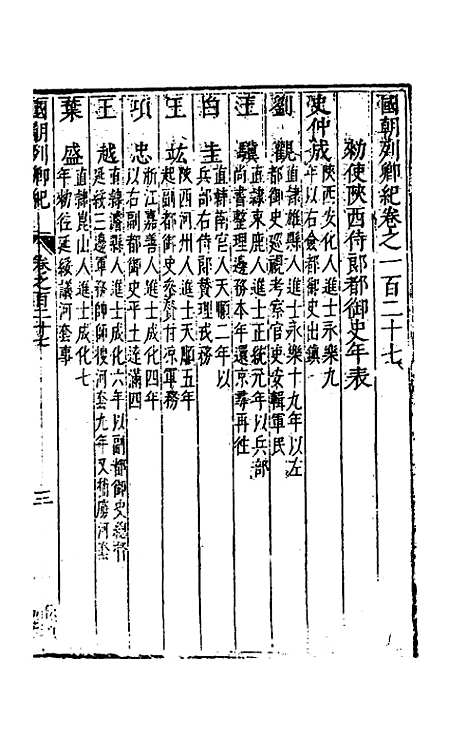 國朝列卿紀卷之一百二十七
勑使陝西侍郎都御史年表
史仲成 陝西安化人進士永樂九
年以右僉都御史出鎮
劉觀 直隸雄縣人進士永樂十九年以左
都御史巡視考察官吏安輯軍民
王驥 直隸束鹿人進士正統元年以兵部
尚書整理邊務本年還京尋再往
白圭 直隸南宮人天順二年以
兵部右侍郎贊理戎務
王竑 陝西河州人進士天順五年
起副都御史參贊甘凉軍務
項忠 浙江嘉善人進士成化四年
以右副都御史平土達滿四
王越 直隸濬縣人進士成化六年以副都御史總督
延綏三邊軍務師師搜河套九年又搗廢河套
葉盛 直隸崑山人進士成化七
年勑往延綏議河套事
國朝列卿紀 卷之百二十七 三